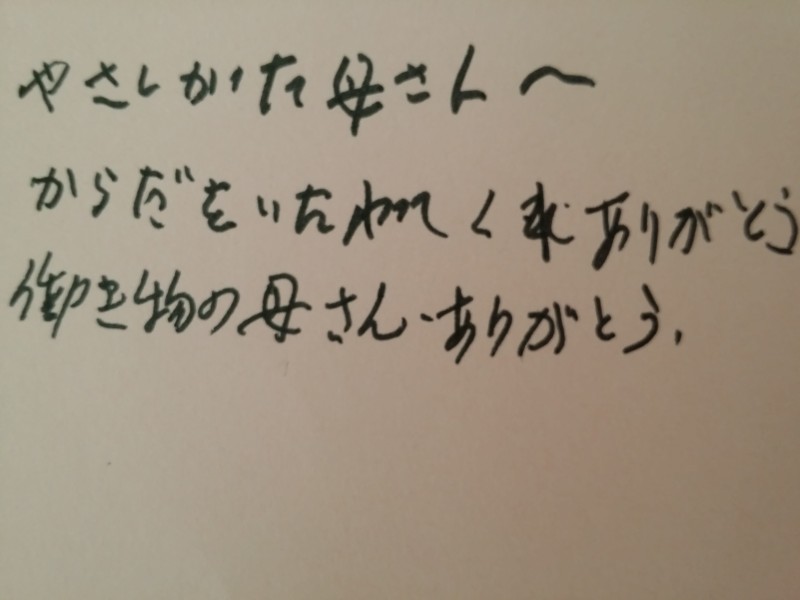 やさしかいた母さんへ
からだをいたわて く来 ありがとう
御き物の母さん、ありがとう。